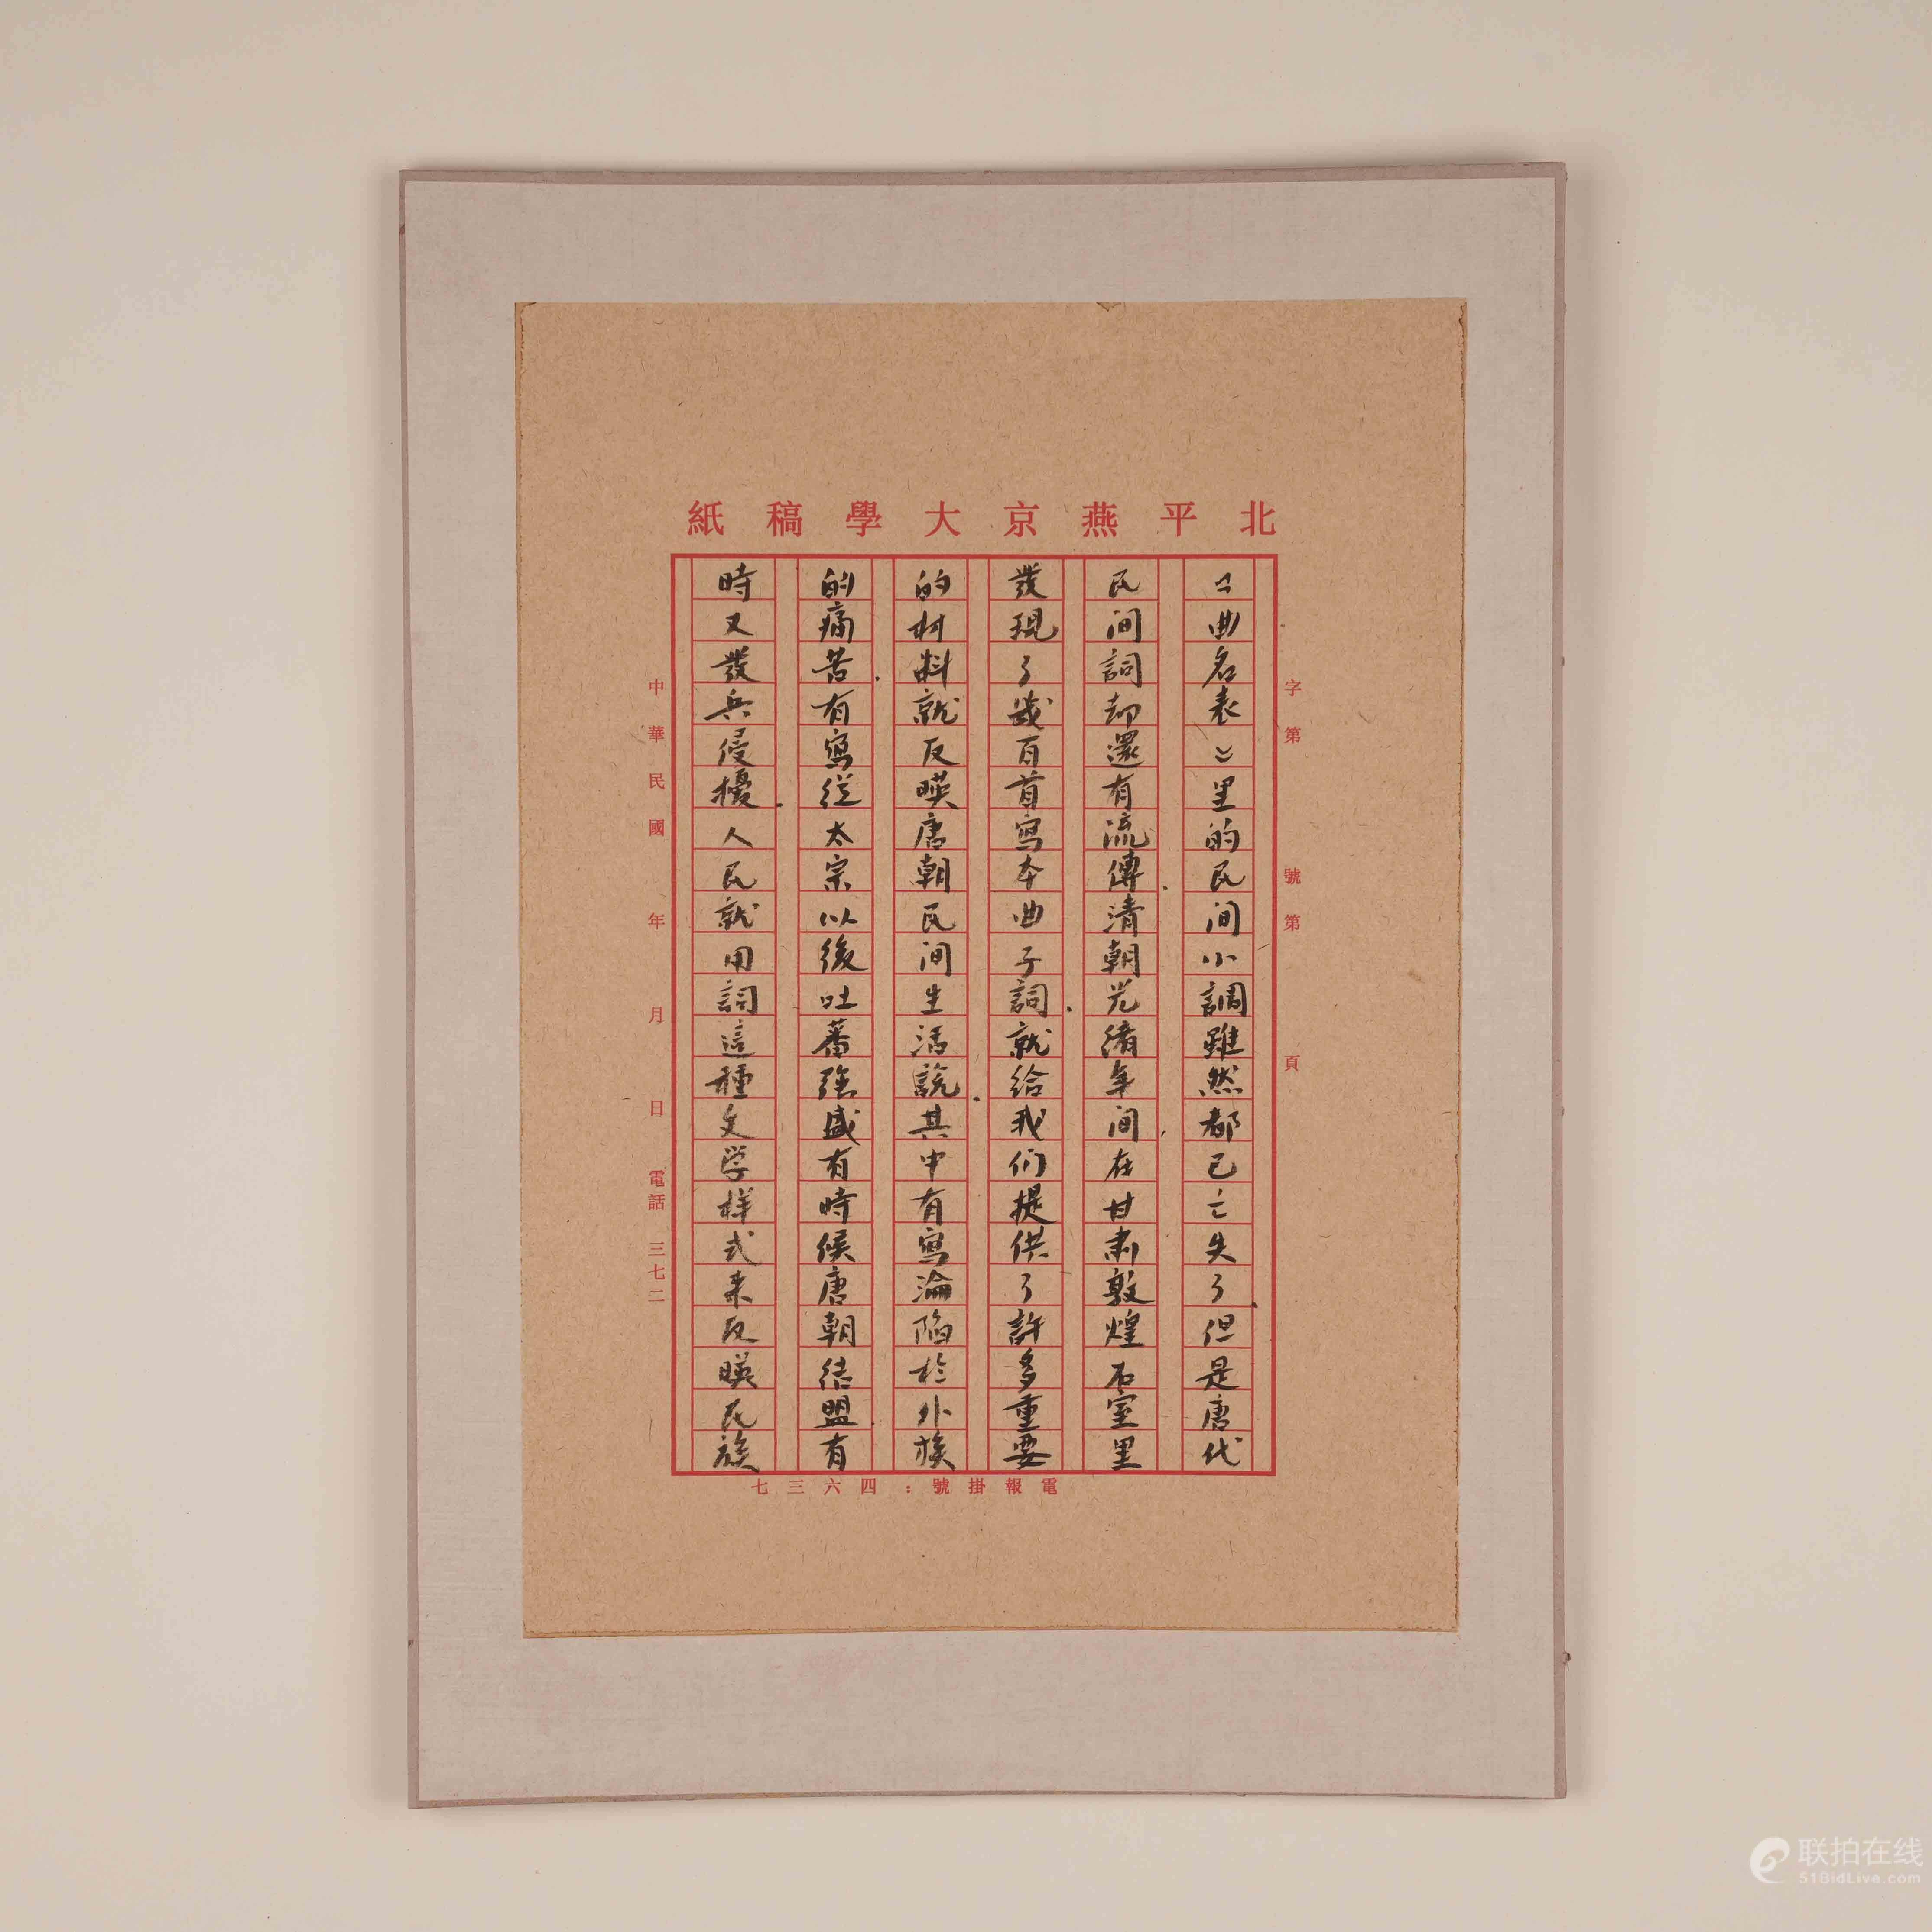 北平燕京大學稿紙
字第 號第 頁
《曲名表》里的民间小調雖然都已亡失了.但是唐代
民间詞却還有流傳.清朝光緒年间,在甘肃敦煌石室里
發現了幾百首寫本曲子詞.就给我们提供了許多重要
的材料就反暎唐朝民间生活說.其中有寫淪陷於外族
的痛苦.有寫從太宗以後吐蕃强盛有時候唐朝结盟有
時又發兵侵擾.人民就用詞這種文学样式来反暎民族
中華民國 年 月 日 電話 三七二
電報掛號：四六三七
联拍在线
51BidLive.com